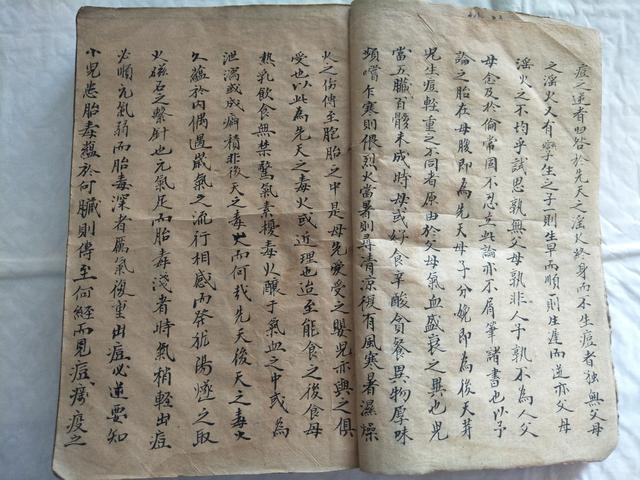 痘之逆者曰咎於先天之淫火終身而不生痘者独無父母
之淫火又有孿生之子則生早而順則生遲而逆亦父母
淫火之不均乎試思孰無父母孰非人子孰不為人父
母念及於倫常固不忍立此論亦不屑筆諸書也以予
論之胎在母腹即為先天母子分娩即為後天葬
児生痘輕重之不同者原由於父母氣血盛衰之異也児
當五臟百骸未成時母或好食辛酸貪餐異物厚味
頻嚐乍寒則偎烈火當暑則尋清涼復有風寒暑濕燥
火之傷傳至胞胎之中是母先受受之嬰児亦與之俱
受也以此為先天之毒火或近理也迨至能食之後食母
熱乳飲食無禁驚氣素擾毒火釀于氣血之中或為
泄瀉或成癖積非後天之毒火而何哉先天後天之毒火
久蘊於内偶遇嵗氣之流行相感而發猶陽燧之取
火磁石之繫針也元氣足而胎毒淺者時氣稍輕出痘
必順元氣弱而胎毒深者厲氣復重出痘必逆要知
小児患胎毒蘊於何臟則傳至何經而見痘癘疫之